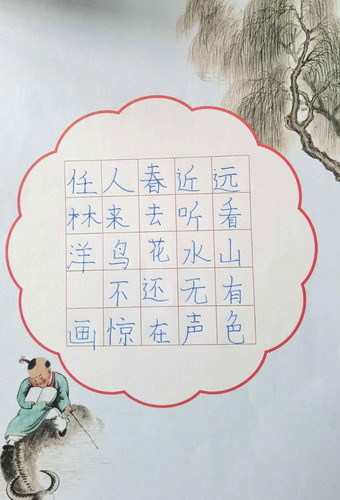 远看山有色
近听水无声
春去花还在
人来鸟不惊
任林洋 画